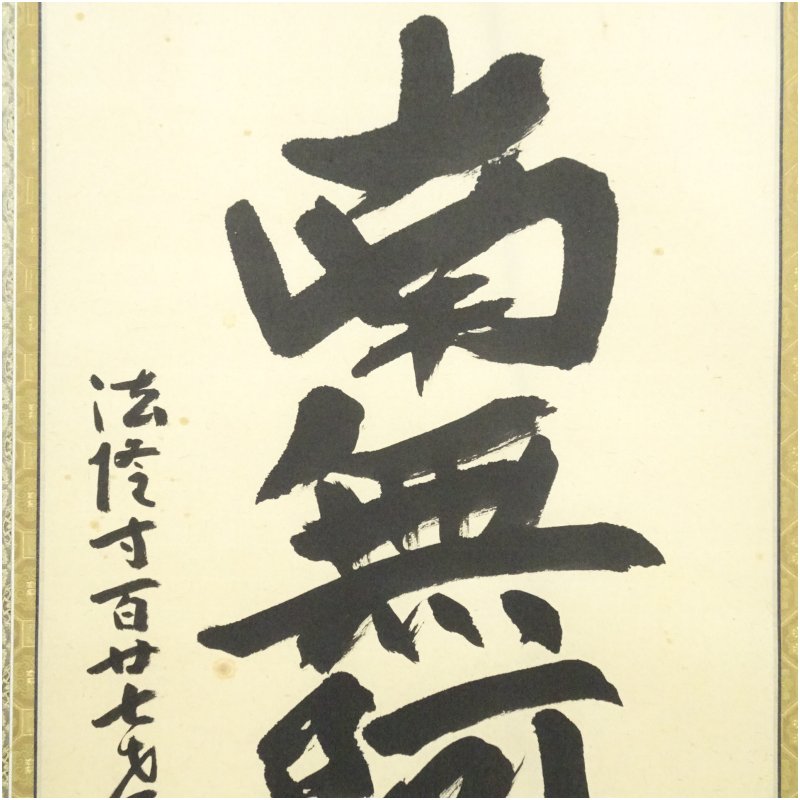 南無阿
法隆寺百廿七世